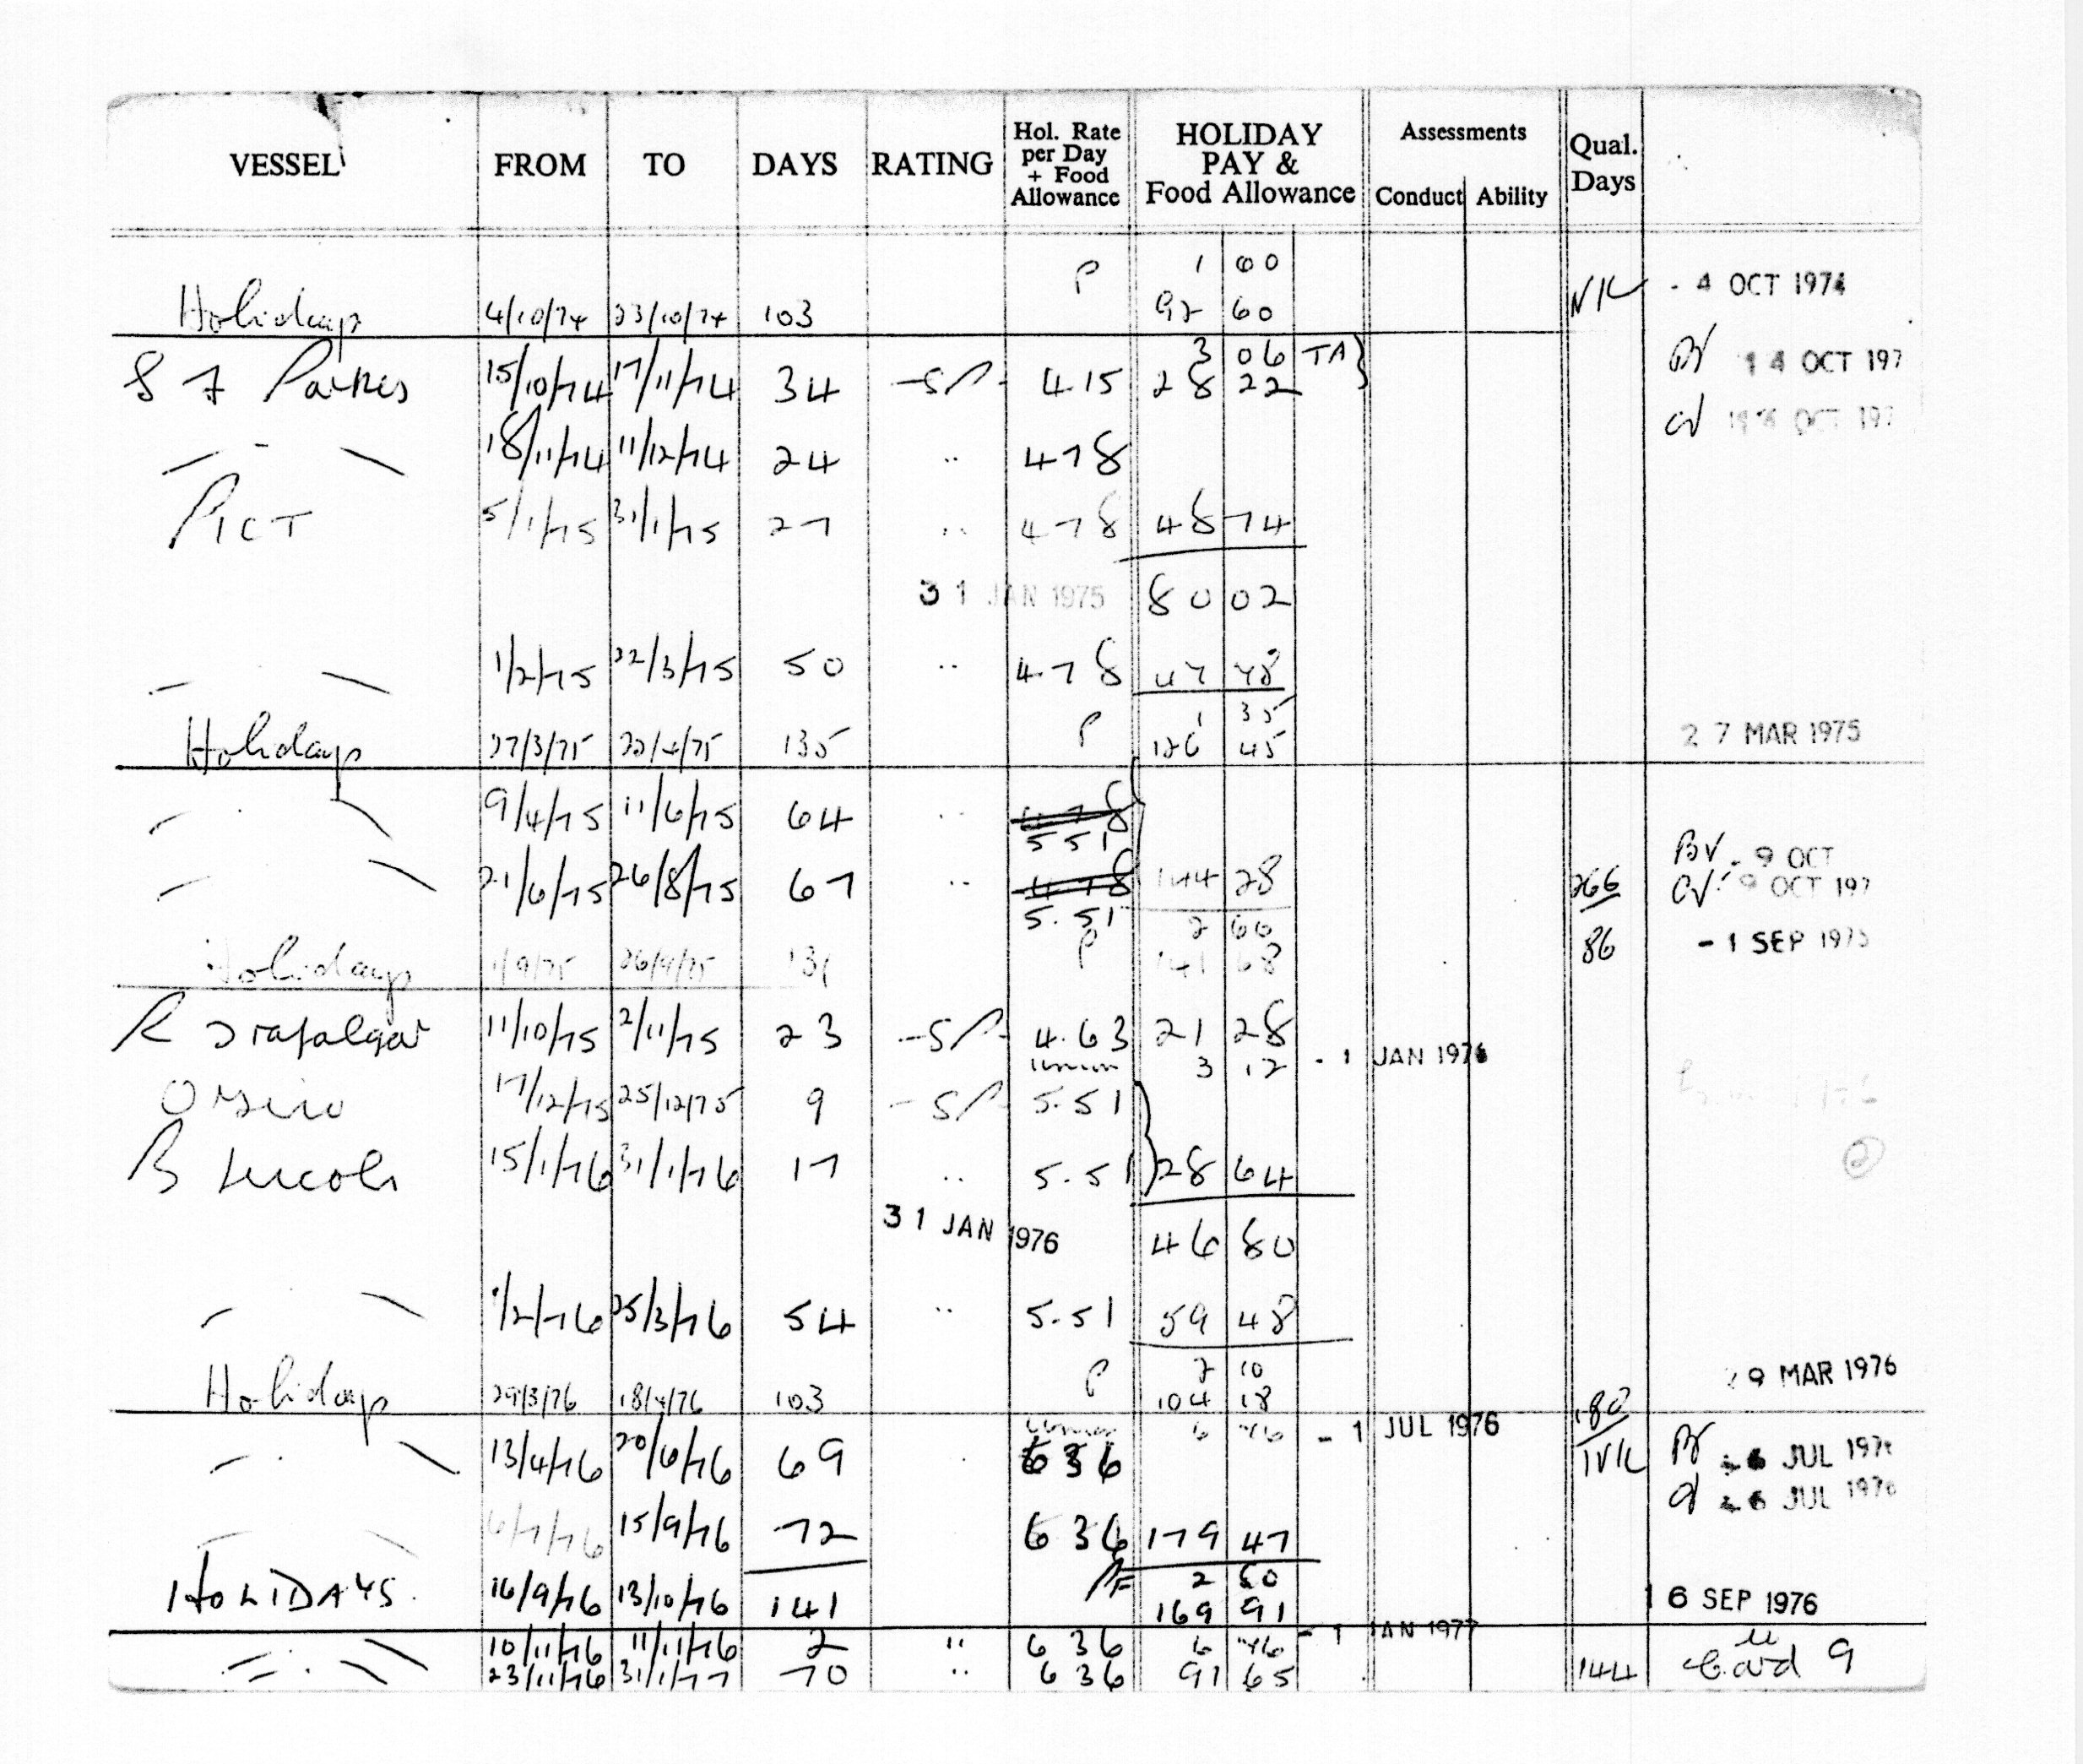 VESSEL FROM TO DAYS RATING Hol. Rate per Day + Food Allowance HOLIDAY PAY & Food Allowance Assessments Conduct Ability Qual. Days
P 1 00
Holidays 4/10/74 23/10/74 103 92 60 - 4 OCT 1974
3 06 TA
15/10/74 17/11/74 34 415 28 22 14 OCT 197
18/11/74 11/12/74 24 " 478 OCT 197
PICT 5/1/75 31/1/75 27 " 478 48 74
31 JAN 1975 80 02
1/2/75 22/3/75 50 " 478 47 48
P 1 35
Holidays 27/3/75 135 126 45 27 MAR 1975
9/4/75 11/6/75 64 " 478
5 51 BV - 9 OCT
21/6/75 26/8/75 67 " 478 144 28 266 CV - 9 OCT 197
5.51 2 60
P 86 - 1 SEP 1975
Holidays 1/9/75 26/9/75 131 141 68
R Trafalgar 11/10/75 2/11/75 23 4.63 21 28
3 12 - 1 JAN 1976
17/12/75 25/12/75 9 5.51
B Lincoln 15/1/76 31/1/76 17 " 5.51 28 64
31 JAN 1976 46 80
1/2/76 25/3/76 54 " 5.51 59 48
P 2 10 29 MAR 1976
Holidays 29/3/76 18/4/76 103 104 18
6 46 - 1 JUL 1976 180
13/4/76 20/6/76 69 636 6 JUL 1976
6 JUL 1976
6/7/76 15/9/76 72 636 179 47
2 80
HOLIDAYS. 16/9/76 13/10/76 141 169 91 16 SEP 1976
- 1 JAN 1977
10/11/76 11/11/76 2 " 636 6 46
23/11/76 31/1/77 70 " 636 91 65 144 Card 9